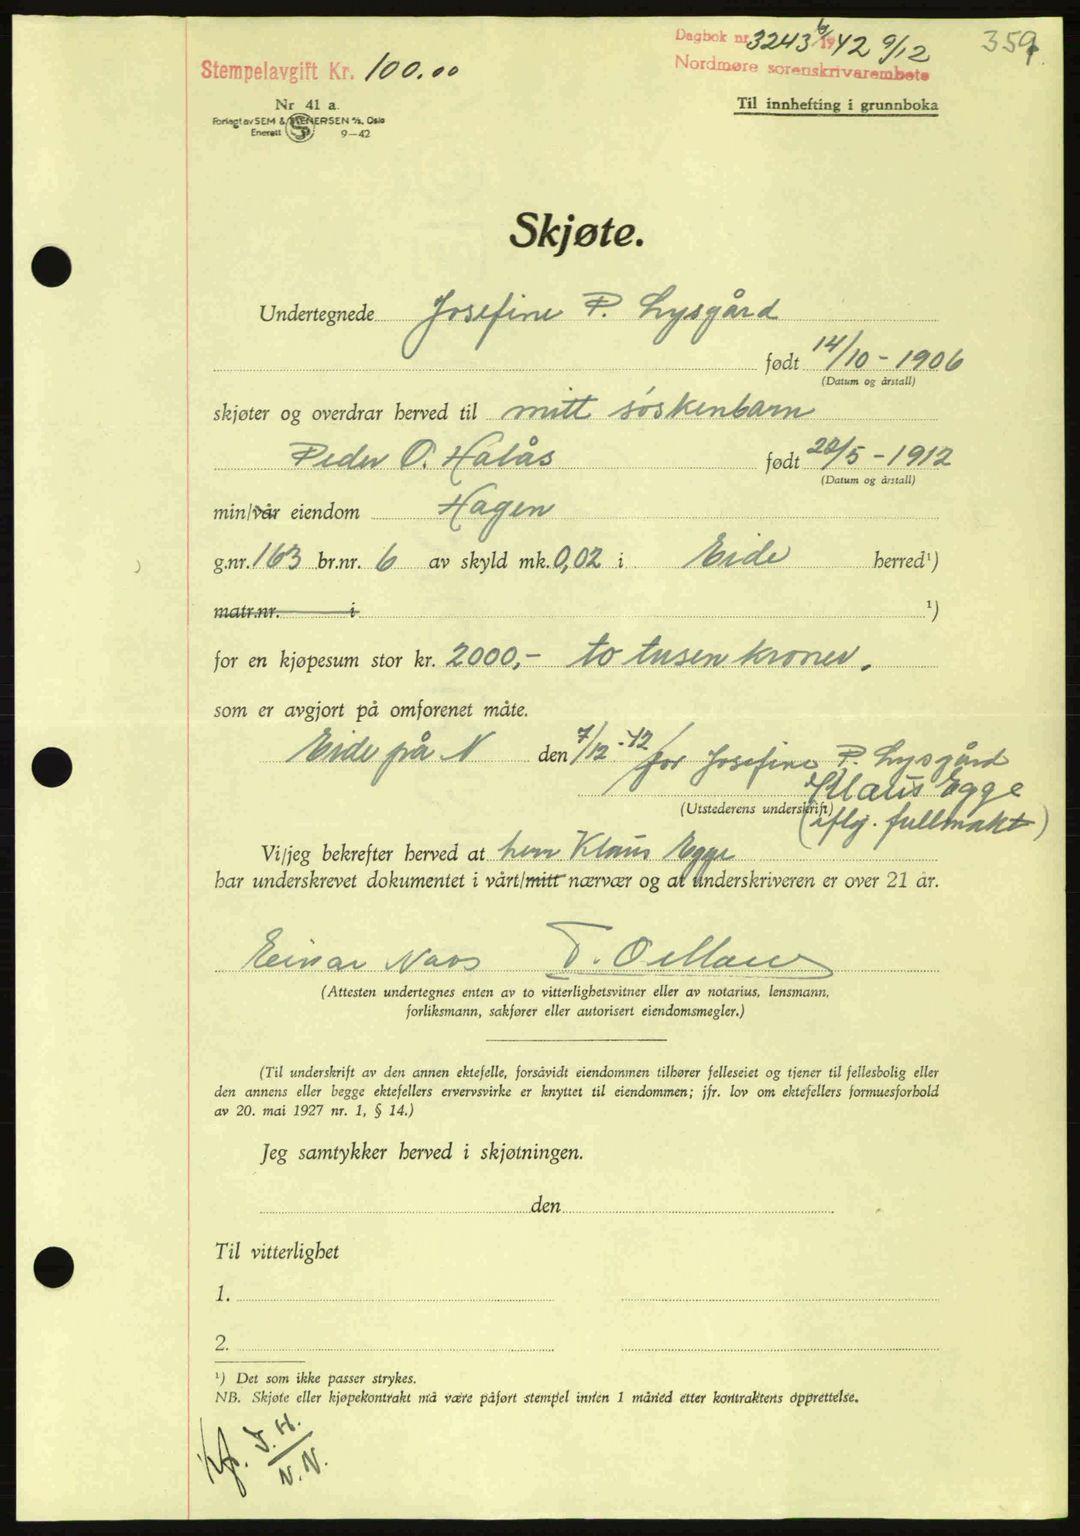 Dagbok nr. 3243 6/1942 9/12
359
Stempelavgift Kr. 100.00
Nordmøre sorenskrivarembete
Nr 41 a.
Til innhefting i grunnboka
Forlagt av SEM & STENERSEN A/S, Oslo
Enerett 9-42
Skjøte.
Undertegnede Josefine P. Lysgård
født 14/10-1906
(Datum og årstall)
skjøter og overdrar herved til mitt søskenbarn
Peder O. Halås født 20/5-1912
(Datum og årstall)
min/vår eiendom Hagen
g.nr. 163 br.nr. 6 av skyld mk. 0,02 i Eide herred¹)
matr.nr. i ¹)
for en kjøpesum stor kr. 2000,- to tusen kroner.
som er avgjort på omforenet måte.
Eide på N den 7/12-42 for Josefine P. Lysgård
Klaus Egge
(Utstederens underskrift) (iflg. fullmakt)
Vi/jeg bekrefter herved at herr Klaus Egge
har underskrevet dokumentet i vårt/mitt nærvær og at underskriveren er over 21 år.
Einar Naas
(Attesten undertegnes enten av to vitterlighetsvitner eller av notarius, lensmann,
forliksmann, sakfører eller autorisert eiendomsmegler.)
(Til underskrift av den annen ektefelle, forsåvidt eiendommen tilhører felleseiet og tjener til fellesbolig eller
den annens eller begge ektefellers ervervsvirke er knyttet til eiendommen; jfr. lov om ektefellers formuesforhold
av 20. mai 1927 nr. 1, § 14.)
Jeg samtykker herved i skjøtningen.
den
Til vitterlighet
1.
2.
¹) Det som ikke passer strykes.
NB. Skjøte eller kjøpekontrakt må være påført stempel innen 1 måned etter kontraktens opprettelse.
Kf. J.H.
N.N.